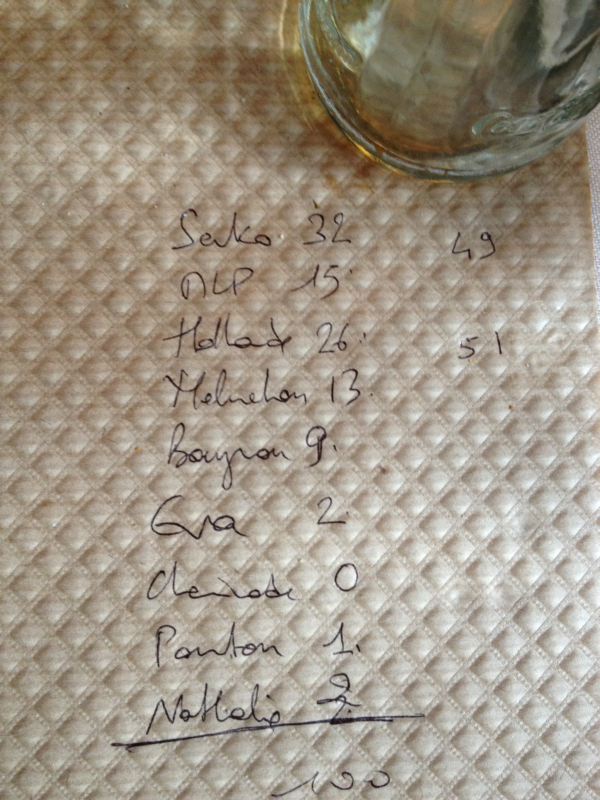 Sarko 32 49
MLP 15
Hollande 26 51
Melenchon 13
Bayrou 9
Eva 2
Cheminade 0
Poutou 1
Nathalie 2
100